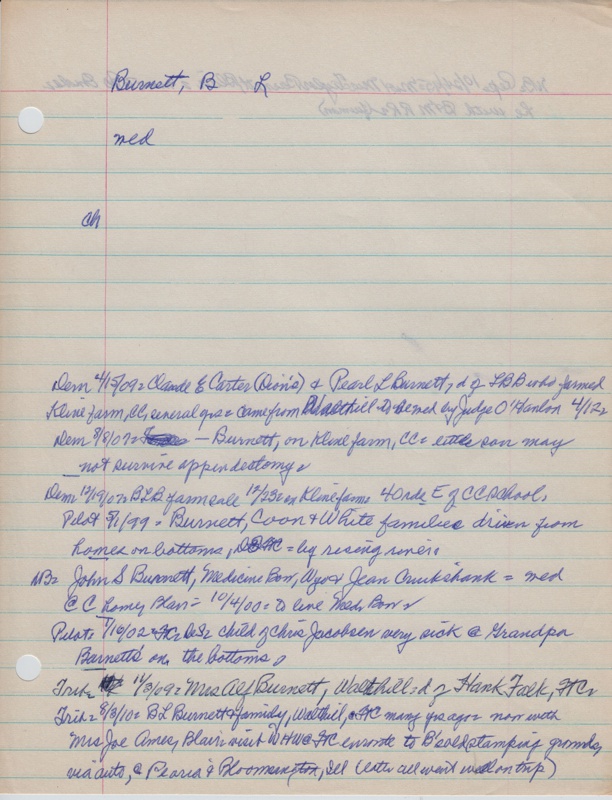 Burnett, B L
med
ch
Dem 4/15/09= Claude E Carter (Dion's) & Pearl L Burnett, d of LBB who farmed
Kline farm, CC, several yrs= came from Walthill to be wed by Judge O'Hanlon 4/12=
Dem 8/8/07= — Burnett, on Kline farm, CC= little son may
not survive appendectomy=
Dem 12/19/07= BLB farm sale 12/23= on Kline farm 40 rds E of CC School,
Pilot 5/1/99= Burnett, Coon & White families driven from
homes on bottoms, = by rising river.
NB= John S Burnett, Medicine Bow, Wyo & Jean Cruikshank = wed
@ CC home, Blair= 10/4/00= to live Meds Bow=
Pilot 1/16/02= child of Chris Jacobsen very sick @ Grandpa
Barnett's on the bottoms.
Trib= 11/3/09= Mrs Alf Burnett, Walthill= d of Hank Falk, FtC=
Trib= 8/3/10= BL Burnett & family, Walthill, & FtC many yrs ago= now with
Mrs Joe Amey, Blair= visit FtC enroute to B's old stamping grounds,
via auto, @ Peoria & Bloomington, Ill (later all went well on trip)